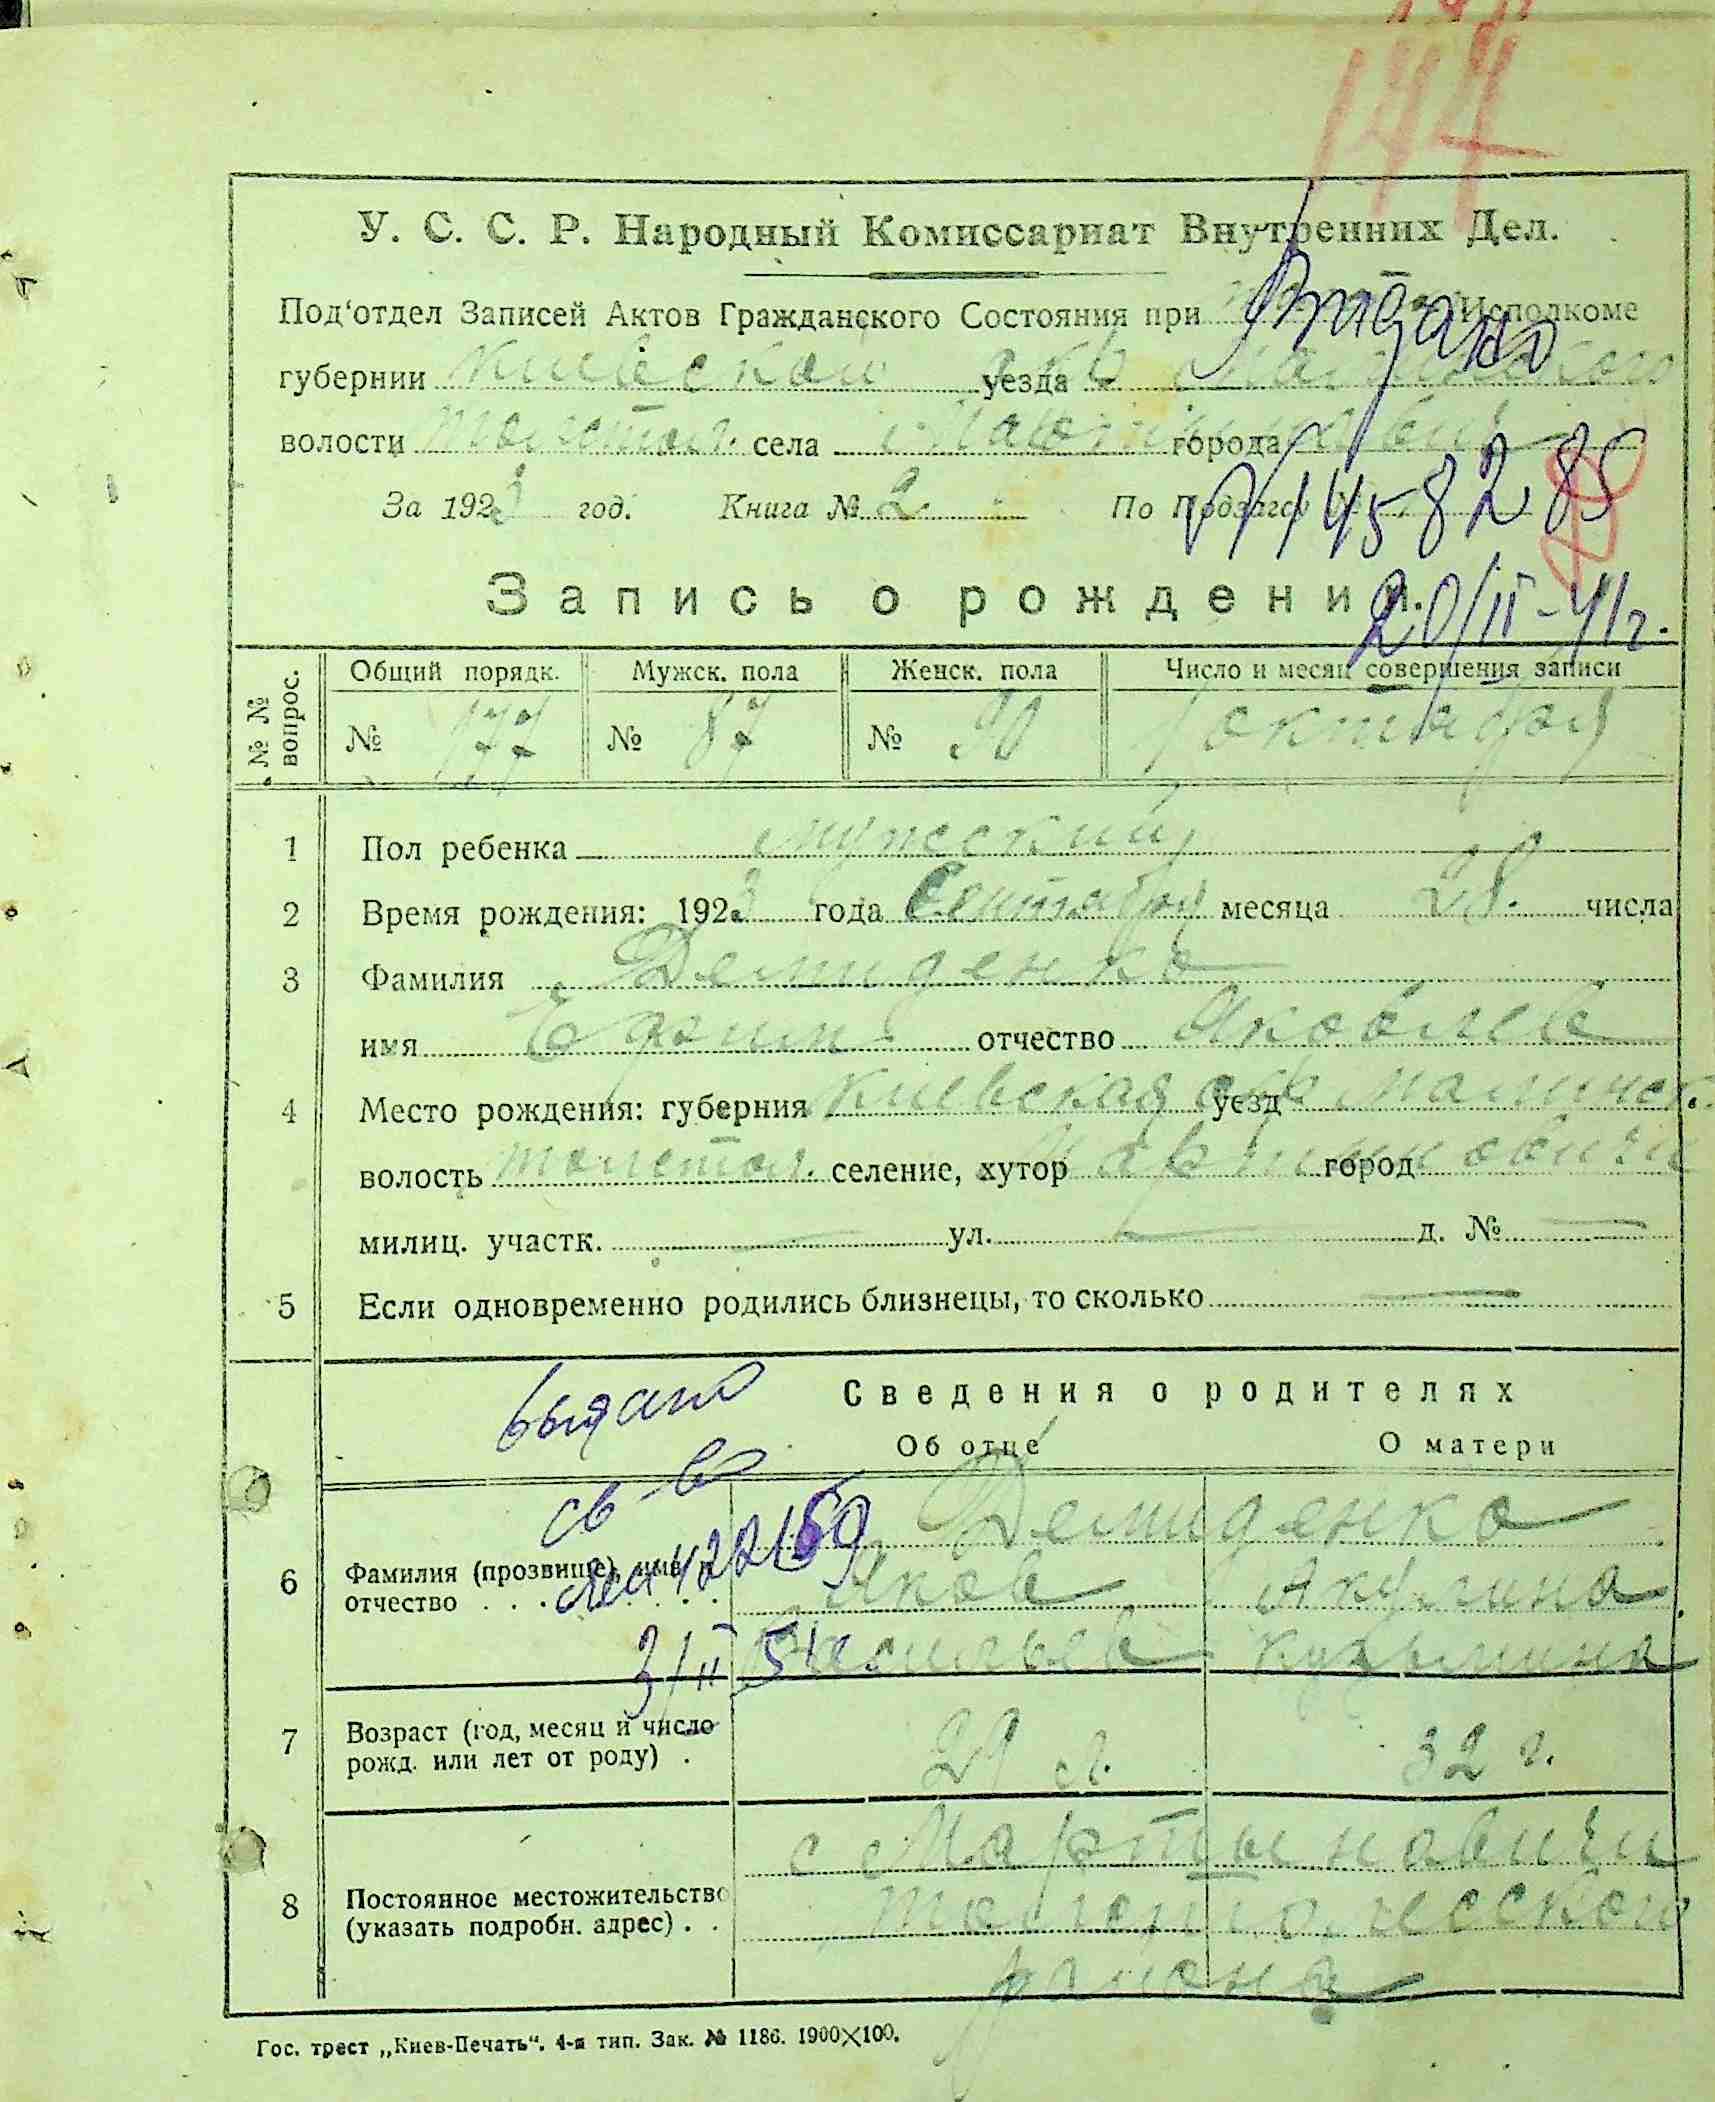 144
У. С. С. Р. Народный Комиссариат Внутренних Дел.
Под'отдел Записей Актов Гражданского Состояния при Исполкоме
Видано
губернии Киевской уезда окр Малинского
волости толстол. села города
№ 1458285
За 1923 год. Книга № 2. По Подзагсу
20/II-41г.
Запись о рождении.
№ № вопрос.
Общий порядк. Мужск. пола Женск. пола Число и месяц совершения записи
№ 177 № 87 № 90 1 октября
1 Пол ребенка мужеский
2 Время рождения: 1923 года Сентября месяца 28. числа
3 Фамилия Демиденко
имя Ефим отчество Яковлев
4 Место рождения: губерния Киевская уезд окр Малинск.
волость толстол. селение, хутор Мартиновичи город
милиц. участк. — ул. — д. № —
5 Если одновременно родились близнецы, то сколько —
Сведения о родителях
выдано
Об отце О матери
св-во
6 Фамилия (прозвище), имя отчество . . . Демиденко
422159
Яков Акулина
Васильев Кузьмина
3/II 51г.
7 Возраст (год, месяц и число рожд. или лет от роду) . 29 л. 32 г.
8 Постоянное местожительство (указать подробн. адрес) . . с Мартыновичи
района
Гос. трест „Киев-Печать“. 4-я тип. Зак. № 1186. 1900×100.